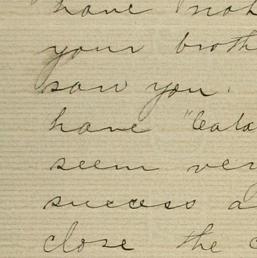 have not
your broth
saw you.
have "Cata
seem very
success a
close the c